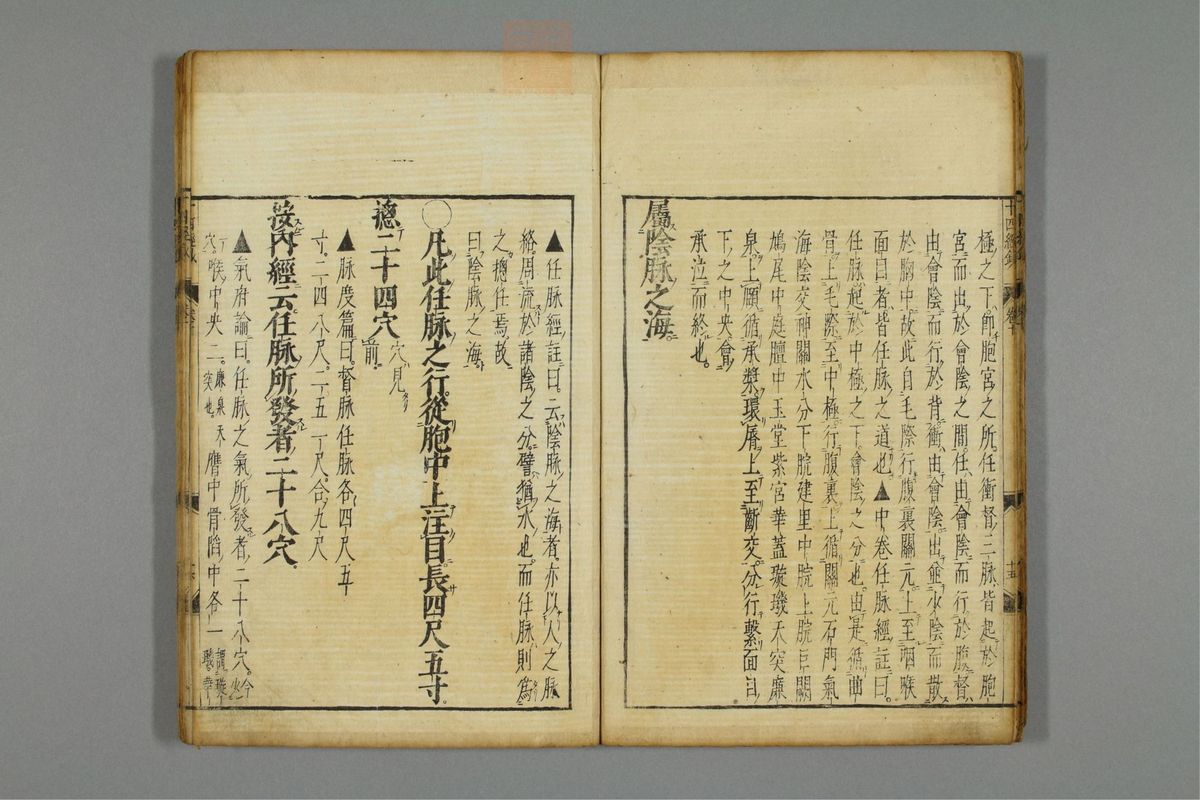 極之下。即胞宮之所。任衝督三脉。皆起於胞
宮而出於會陰之間。任由會陰而行於腹。督
由會陰而行於背。衝由會陰出並少陰而散
於胸中。故此自毛際行腹裏關元。上至咽喉
面目者。皆任脉之道也。▲中卷任脉經註曰。
任脉起於中極之下。會陰之分也。由是循曲
骨。上毛際。至中極。行腹裏。上循關元石門氣
海陰交神闕水分下脘建里中脘上脘巨闕
鳩尾中庭膻中玉堂紫宮華蓋璇璣天突廉
泉。上頤。循承漿。環唇上。至齗交。分行。繫面目
下之中央。會
承泣而終也。
屬陰脉之海。
▲任脉經註曰。云陰脉之海者。亦以人之脉
絡。周流於諸陰之分。譬猶水也。而任脉則爲
之總任焉。故
曰陰脉之海。
○凡此任脉之行。從胞中上注目。長四尺五寸。
總二十四穴 穴見前。
▲脉度篇曰。督脉任脉各四尺五
寸。二四八尺。二五一尺。合九尺
按內經云任脉所發者二十八穴。
▲氣府論曰。任脉之氣所發者。二十八穴。今
穴 喉中央二。廉泉天突也。膺中骨陷中各一